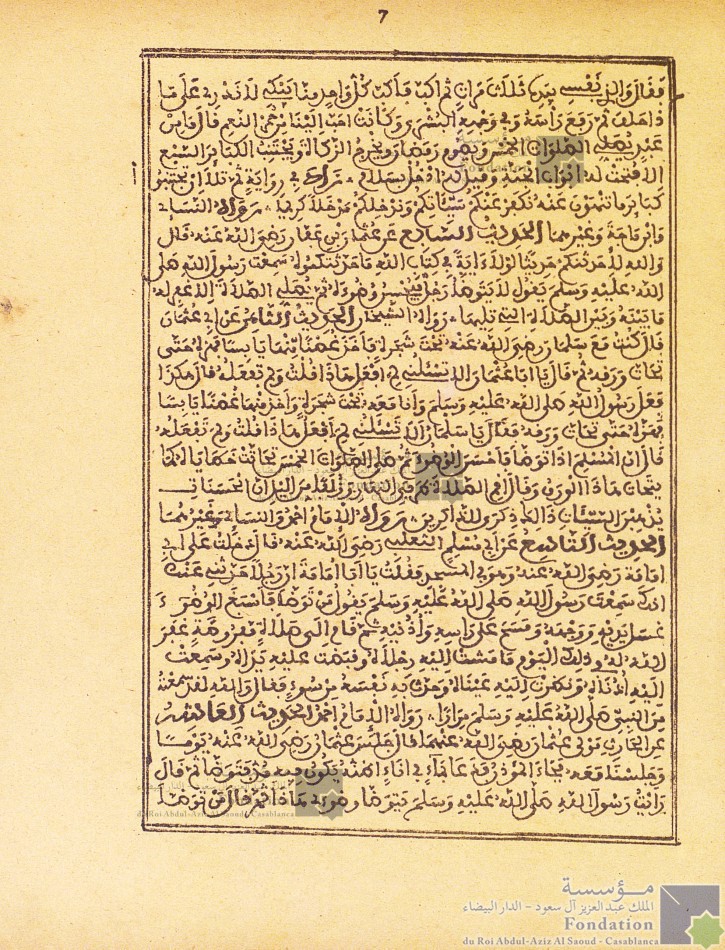 7
فقال والذي نفسي بيده ثلاث مرات ثم اكب فأكب كل واحد منا يبكي لا ندري على ما
ذا حلف ثم رفع رأسه وفي وجهه البشرى وكانت احب الينا من حمر النعم قال ما من
عبد يصلي الصلوات الخمس ويصوم رمضان ويخرج الزكاة ويجتنب الكبائر السبع
الا فتحت له ابواب الجنة وقيل له ادخل بسلام زاد في رواية ثم تلا ان تجتنبوا
كبائر ما تنهون عنه نكفر عنكم سيئاتكم وندخلكم مدخلا كريما رواه النسائي
وابن ماجة وغيرهما الحديث السابع عن عثمان بن عفان رضي الله عنه قال
والله لاحدثنكم حديثا لولا ءاية في كتاب الله ما حدثتكموه سمعت رسول الله صلى
الله عليه وسلم يقول لا يتوضأ رجل فيحسن وضوءه ثم يصلي الصلاة الا غفر له
ما بينه وبين الصلاة التي تليها رواه الشيخان الحديث الثامن عن ابي عثمان
قال كنت مع سلمان رضي الله عنه تحت شجرة فاخذ غصنا منها يابسا فهزه حتى
تحات ورقه ثم قال يا ابا عثمان الا تسئلني لم افعل هذا قلت ولم تفعله قال هكذا
فعل رسول الله صلى الله عليه وسلم وأنا معه تحت شجرة واخذ منها غصنا يابسا
فهزه حتى تحات ورقه فقال يا سلمان الا تسئلني لم أفعل هذا قلت ولم تفعله
قال ان المسلم اذا توضأ فأحسن الوضوء ثم صلى الصلوات الخمس تحاتت خطاياه كما
يتحات هذا الورق وقال أقم الصلاة طرفي النهار وزلفا من اليل ان الحسنات
يذهبن السيئات ذلك ذكرى للذاكرين رواه الامام احمد والنسائي وغيرهما
الحديث التاسع عن ابي مسلم التغلبي رضي الله عنه قال دخلت على ابي
امامة رضي الله عنه وهو في المسجد فقلت يا أبا امامة ان رجلا حدثني عنك
انك سمعت رسول الله صلى الله عليه وسلم يقول من توضأ فأسبغ الوضوء
غسل يديه ووجهه ومسح على رأسه وأذنيه ثم قام الى صلاة مفروضة غفر
الله له في ذلك اليوم ما مشت اليه رجلاه وقبضت عليه يداه وسمعت
اليه اذناه ونظرت اليه عيناه وحدث به نفسه من سوء فقال والله لقد سمعته
من النبي صلى الله عليه وسلم مرارا رواه الامام احمد الحديث العاشر
عن الحارث مولى عثمان رضي الله عنهما قال جلس عثمان رضي الله عنه يوما
وجلسنا معه فجاء المؤذن فدعا بماء في اناء اظنه يكون فيه مد فتوضأ ثم قال
رأيت رسول الله صلى الله عليه وسلم يتوضأ وضوءي هذا ثم قال من توضأ
مؤسسة
الملك عبد العزيز آل سعود - الدار البيضاء
Fondation
du Roi Abdul-Aziz Al Saoud - Casablanca